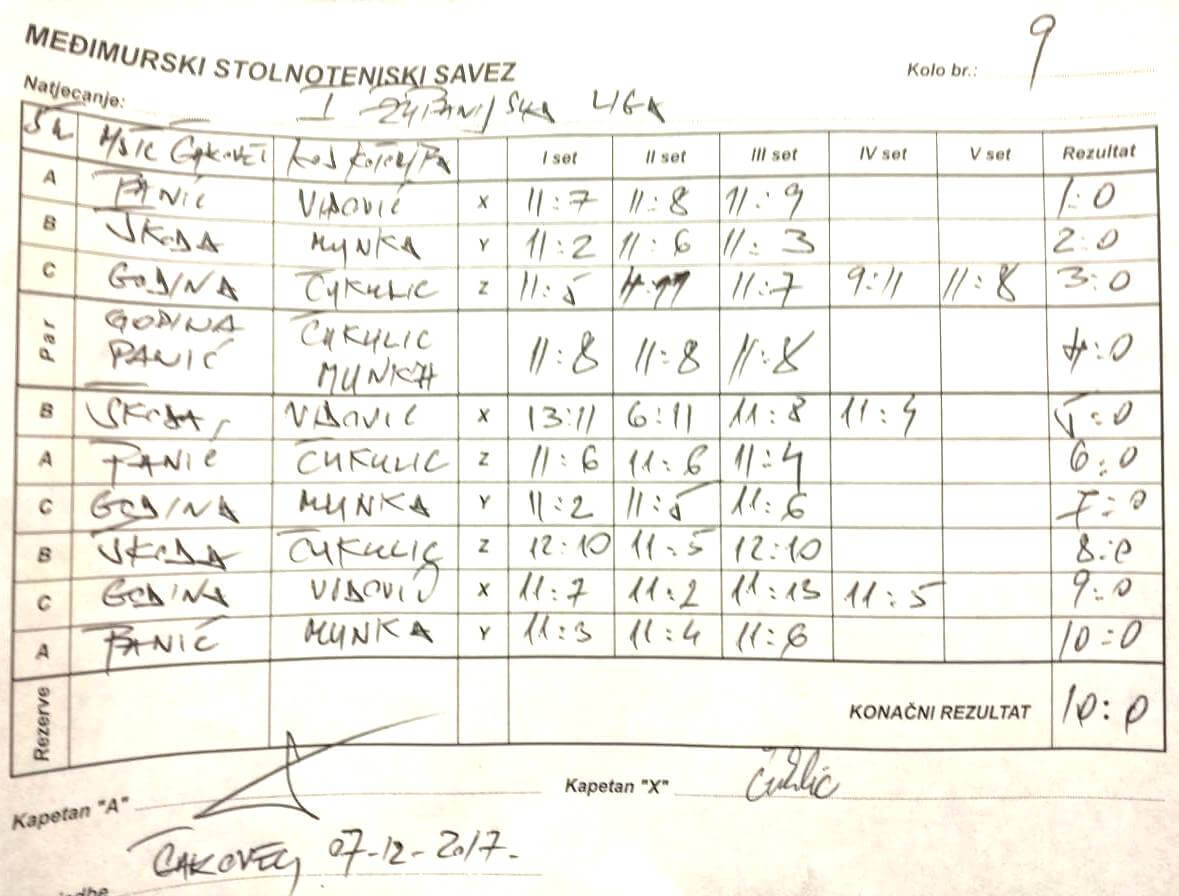 MEĐIMURSKI STOLNOTENISKI SAVEZ
Kolo br.: 9
Natjecanje: I ŽUPANIJSKA LIGA
I set II set III set IV set V set Rezultat
A PANIĆ VIDOVIĆ X 11:7 11:8 11:9 1:0
B ŠKODA MUNKA Y 11:2 11:6 11:3 2:0
C GODINA ČUKULIC Z 11:5 4:11 11:7 9:11 11:8 3:0
Par GODINA PANIĆ ČUKULIC MUNKA 11:8 11:8 11:8 4:0
B ŠKODA VIDOVIĆ X 13:11 6:11 11:8 11:4 5:0
A PANIĆ ČUKULIC Z 11:6 11:6 11:4 6:0
C GODINA MUNKA Y 11:2 11:5 11:6 7:0
B ŠKODA ČUKULIC Z 12:10 11:5 12:10 8:0
C GODINA VIDOVIĆ X 11:7 11:2 11:13 11:5 9:0
A PANIĆ MUNKA Y 11:3 11:4 11:6 10:0
Rezerve KONAČNI REZULTAT 10:0
Kapetan "A" Kapetan "X"
ČAKOVEC, 07-12-2017.